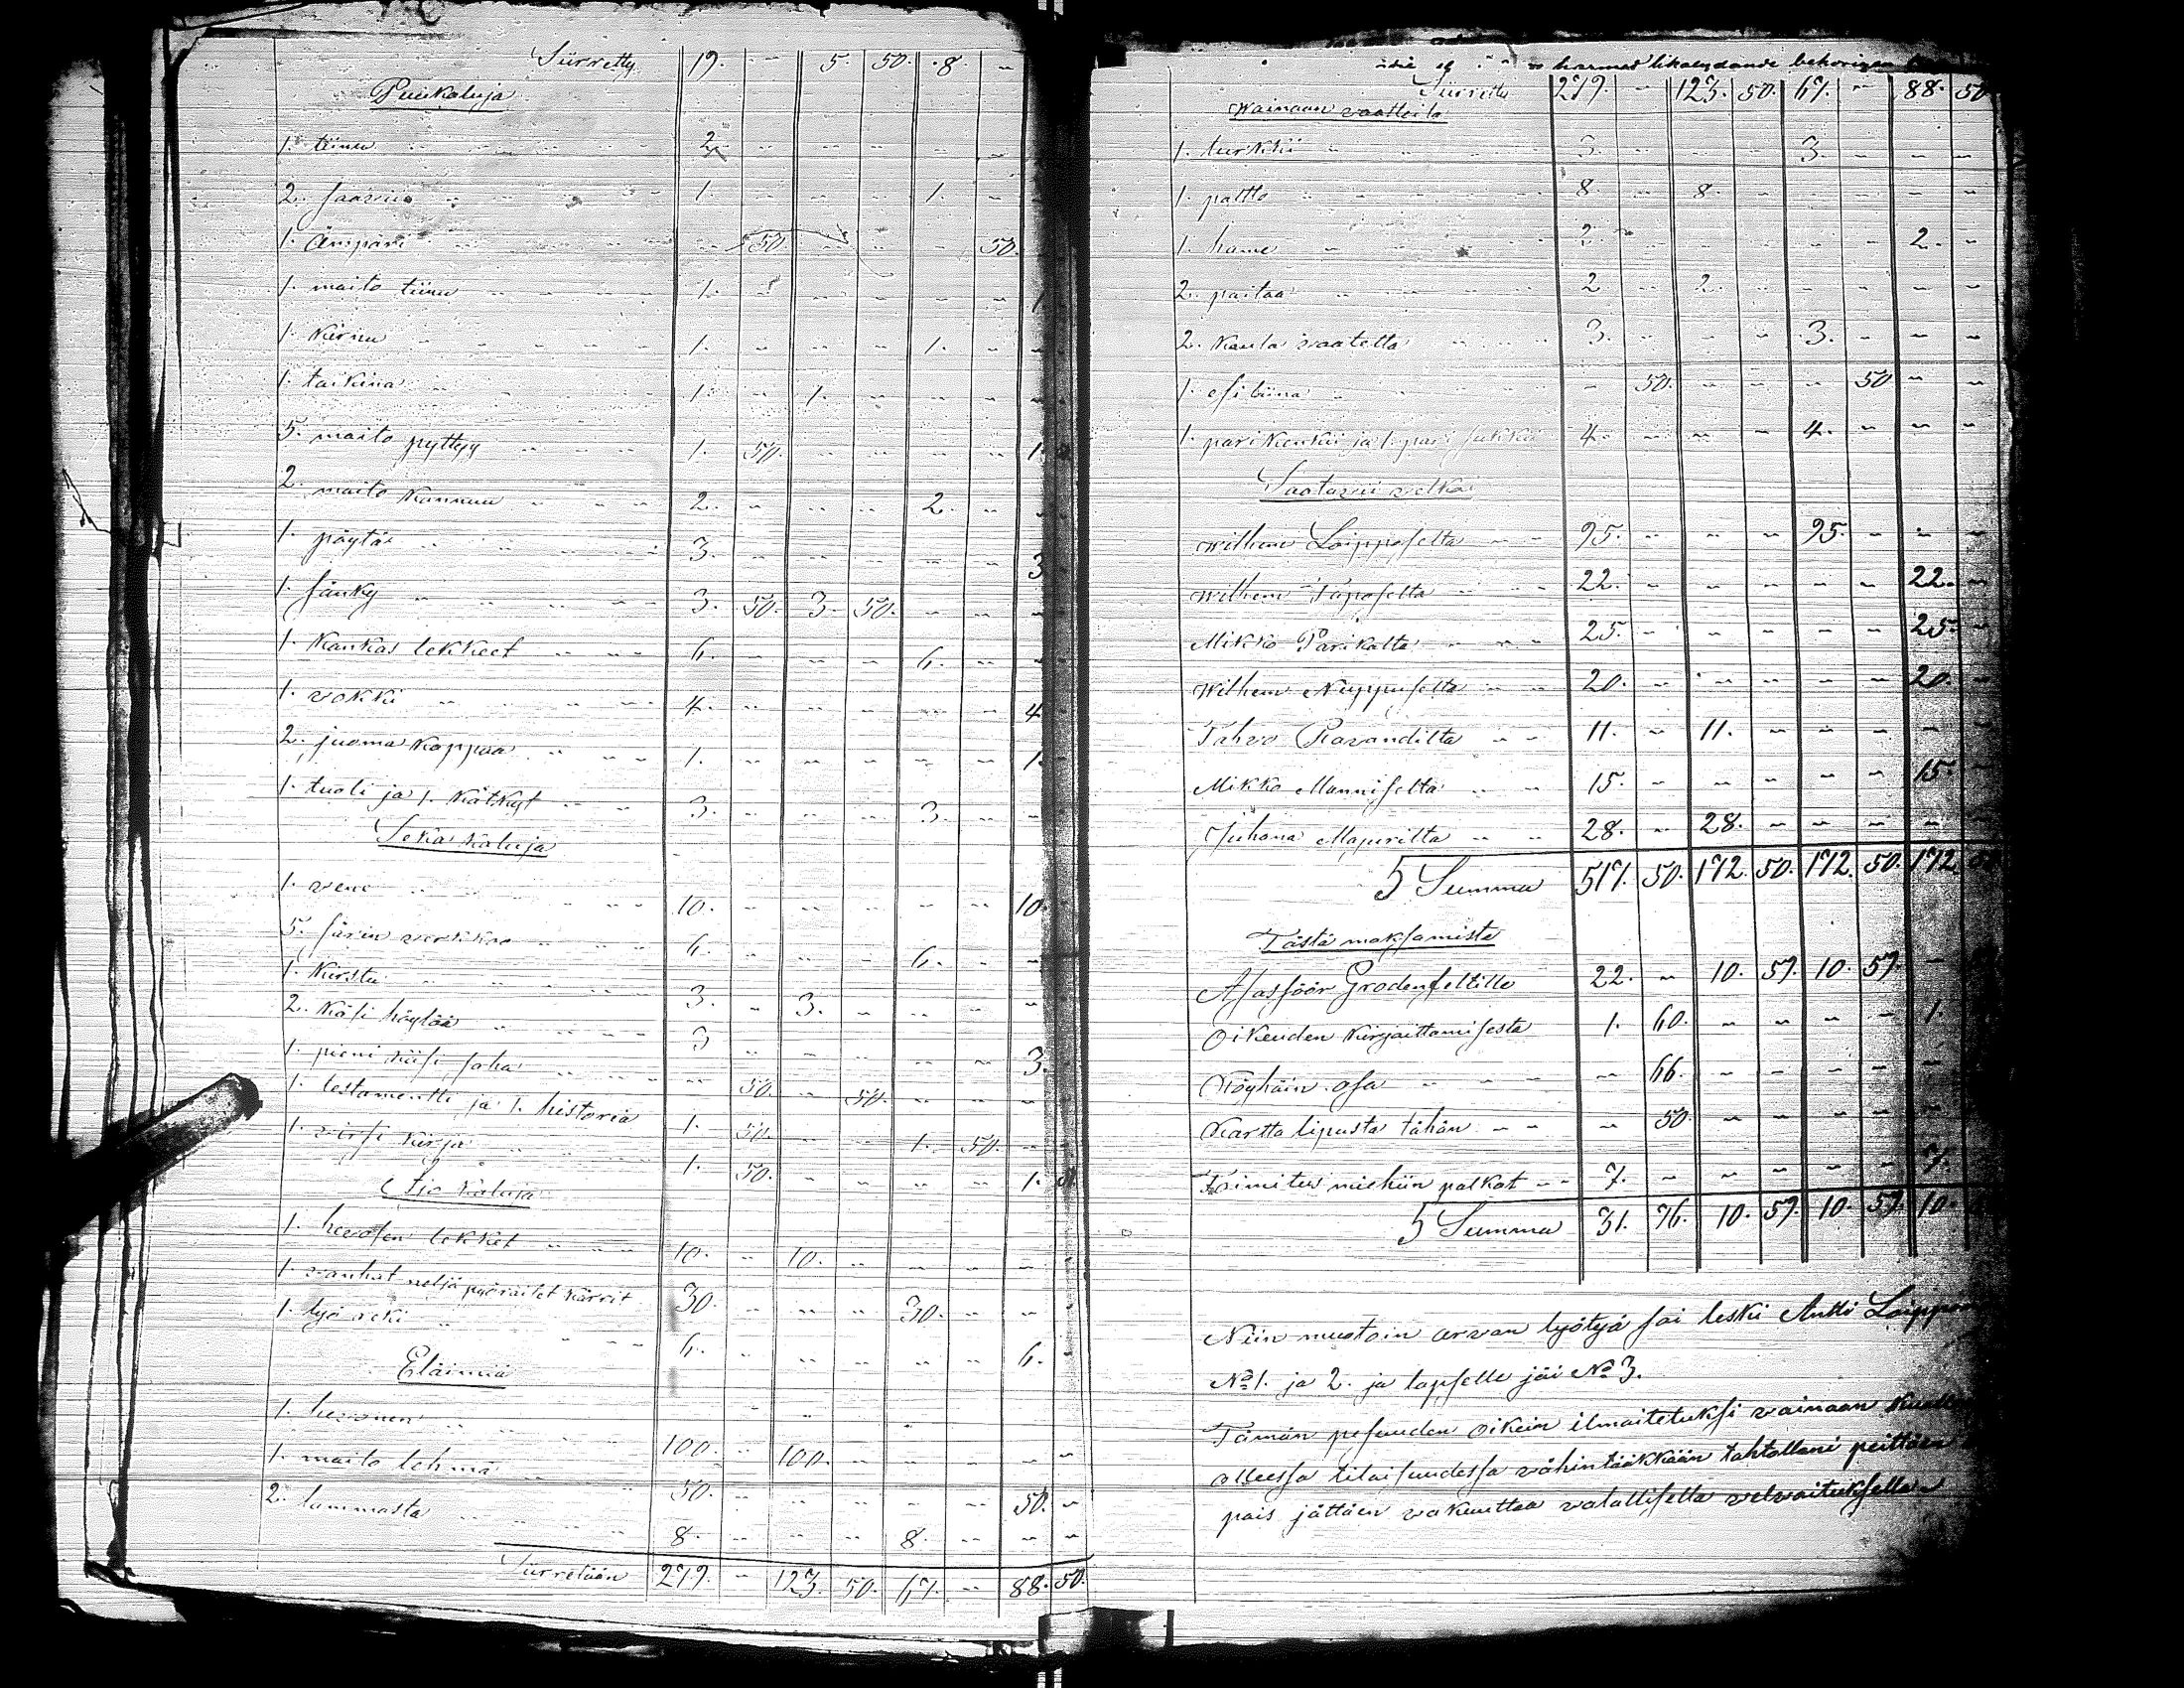 Siirretty 19. - 5. 50. 8. -
Puukaluja
1. tiinu 2. - - - - -
2. saavia 1. - - - 1. -
1. Ämpäri - 50. - - - 50.
1. maito tiinu 1. - - - - - 1.
1. kirnu 1. - - - 1. - -
1. taikina 1. - 1. - - - -
5. maito pyttyy 1. 50. - - - - 1.
2. maito kannuu 2. - - - 2. - -
1. pöytä 3. - - - - - 3
1. sänky 3. 50. 3. 50. - - -
1. kankas tekkeet 6. - - - 6. - -
1. vokki 4. - - - - - 4
2. juoma kappaa 1. - - - - - 1. -
1. tuoli ja 1. kätkyt 3. - - - 3. - -
Seka kaluja
1. vene 10. - - - - - 10.
5. särin verkkoo 6. - - - 6. - -
1. kirstu 3. - 3. - - - -
2. käsi höylää 3 - - - - - 3.
1. pieni käsi saha - 50. - 50. - - -
1. testamentti ja 1. historia 1. 50. - - 1. 50. - -
1. virsi kirja 1. 50. - - - - 1.
Ajo kaluja
1. hevosen tekket 10. - 10. - - - - -
1. vanhat neljä pyöräitet kärrit 30. - - - 30. - -
1. työ reki 6. - - - - - 6. -
Eläimiä
1. hevonen 100. - 100. - - - - -
1. maito lehmä 50. - - - - - 50. -
2. lammasta 8. - - - 8. - - -
Siirretään 279. - 123. 50. 67. - 88. 50.
likalydande behörigen
Siirretty 279. - 123. 50. 67. - 88. 50
Wainaan vaatteita
1. turkki 3. - - - 3. - - -
1. paltto 8. - 8. - - - - -
1. hame 2. - - - - - 2. -
2. paitaa 2 - 2. - - - - -
2. kaula vaatetta 3. - - - 3. - - -
1. esi liina - 50. - - - 50 - -
1. pari kenkii ja 1. pari sukkii 4. - - - 4. - - -
Saatavii velkoi
Wilhem Loipposelta 95. - - - 95. - - -
Wilhem Taposelta 22. - - - - - 22. -
Mikko Parikalta 25. - - - - - 25. -
Wilhem Nuppuselta 20. - - - - - 20. -
Tahvo Ravanditta 11. - 11. - - - - -
Mikko Manniselta 15. - - - - - 15. -
Juhana Majuritta 28. - 28. - - - - -
Summa 517. 50. 172. 50. 172. 50. 172
Tästä maksamista
Asassöör Grodenseltille 22. - 10. 57. 10. 57. -
Oikeuden kirjaittamisesta 1. 60. - - - - 1.
Köyhäin osa - 66. - - - - -
Kartta lipusta tähän - 50. - - - - -
Toimitus miehiin palkat 7. - - - - - 7.
Summa 31. 76. 10. 57. 10. 57. 10.
Niin muotoin arvan lyötyä sai leski Antti Loippo
No 1. ja 2. ja lapselle jäi No 3.
Tämän pesuuden oikein ilmaitetuksi vainaan
olleessa tilaisuudessa vähintäkkään tahtollani peittäen
pois jättäen vakuuttaa valallisella velvoituksella